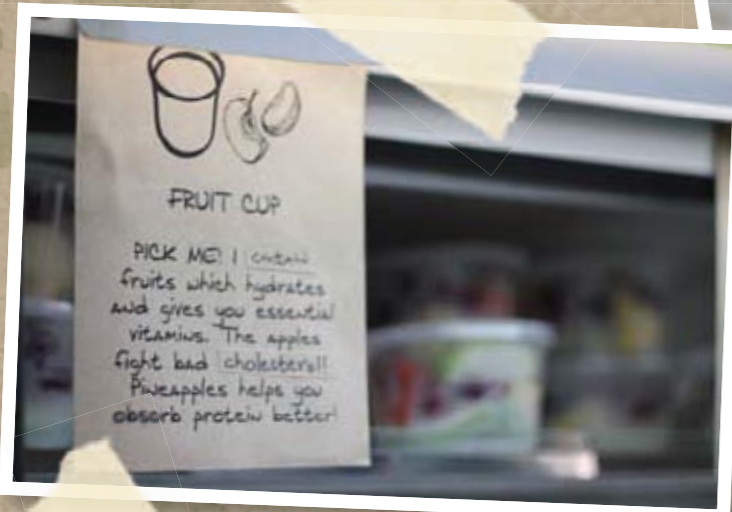 FRUIT CUP
PICK ME! I contain
fruits which hydrates
and gives you essential
vitamins. The apples
fight bad cholesterol!
Pineapples helps you
absorb protein better!